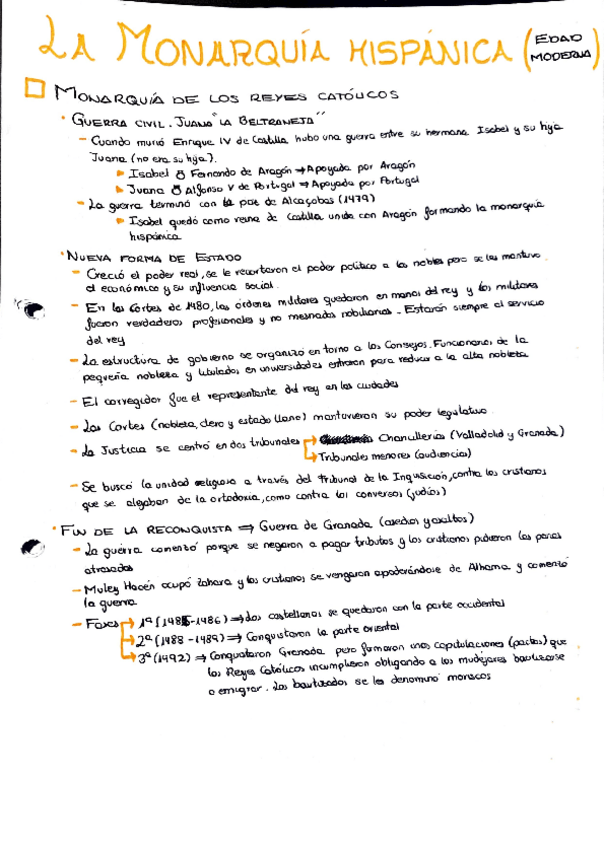 LA MONARQUÍA HISPÁNICA (EDAD MODERNA)
MONARQUÍA DE LOS REYES CATÓLICOS
· GUERRA CIVIL. JUANA "LA BELTRANEJA"
- Cuando murió Enrique IV de Castilla hubo una guerra entre su hermana Isabel y su hija
Juana (no era su hija).
Isabel ⚭ Fernando de Aragón → Apoyada por Aragón
Juana ⚭ Alfonso V de Portugal → Apoyada por Portugal
- La guerra terminó con la paz de Alcaçobas (1479)
Isabel quedó como reina de Castilla unida con Aragón formando la monarquía
hispánica
· NUEVA FORMA DE ESTADO
- Creció el poder real, se le recortaron el poder político a los nobles pero se les mantuvo
el económico y su influencia social.
- En las Cortes de 1480, las órdenes militares quedaron en manos del rey y los militares
fueron verdaderos profesionales y no mesnadas nobiliarias. Estarán siempre al servicio
del rey
- La estructura de gobierno se organizó en torno a los Consejos. Funcionarios de la
pequeña nobleza y titulados en universidades entraron para reducir a la alta nobleza
- El corregidor fue el representante del rey en las ciudades
- Las Cortes (nobleza, clero y estado llano) mantuvieron su poder legislativo
- La Justicia se centró en dos tribunales → Chancillería (Valladolid y Granada)
→ Tribunales menores (audiencia)
- Se buscó la unidad religiosa a través del Tribunal de la Inquisición, contra los cristianos
que se alejaban de la ortodoxia, como contra los conversos (judíos)
· FIN DE LA RECONQUISTA ⇒ Guerra de Granada (asedios y asaltos)
- La guerra comenzó porque se negaron a pagar tributos y los cristianos pidieron las parias
atrasadas
- Muley Hacén ocupó Zahara y los cristianos se vengaron apoderándose de Alhama y comenzó
la guerra
- Fases → 1ª (1485-1486) ⇒ Los castellanos se quedaron con la parte occidental
→ 2ª (1488-1489) ⇒ Conquistaron la parte oriental
→ 3ª (1492) ⇒ Conquistaron Granada pero firmaron unas capitulaciones (pactos) que
los Reyes Católicos incumplieron obligando a los mudéjares bautizarse
o emigrar. Los bautizados se les denominó moriscos